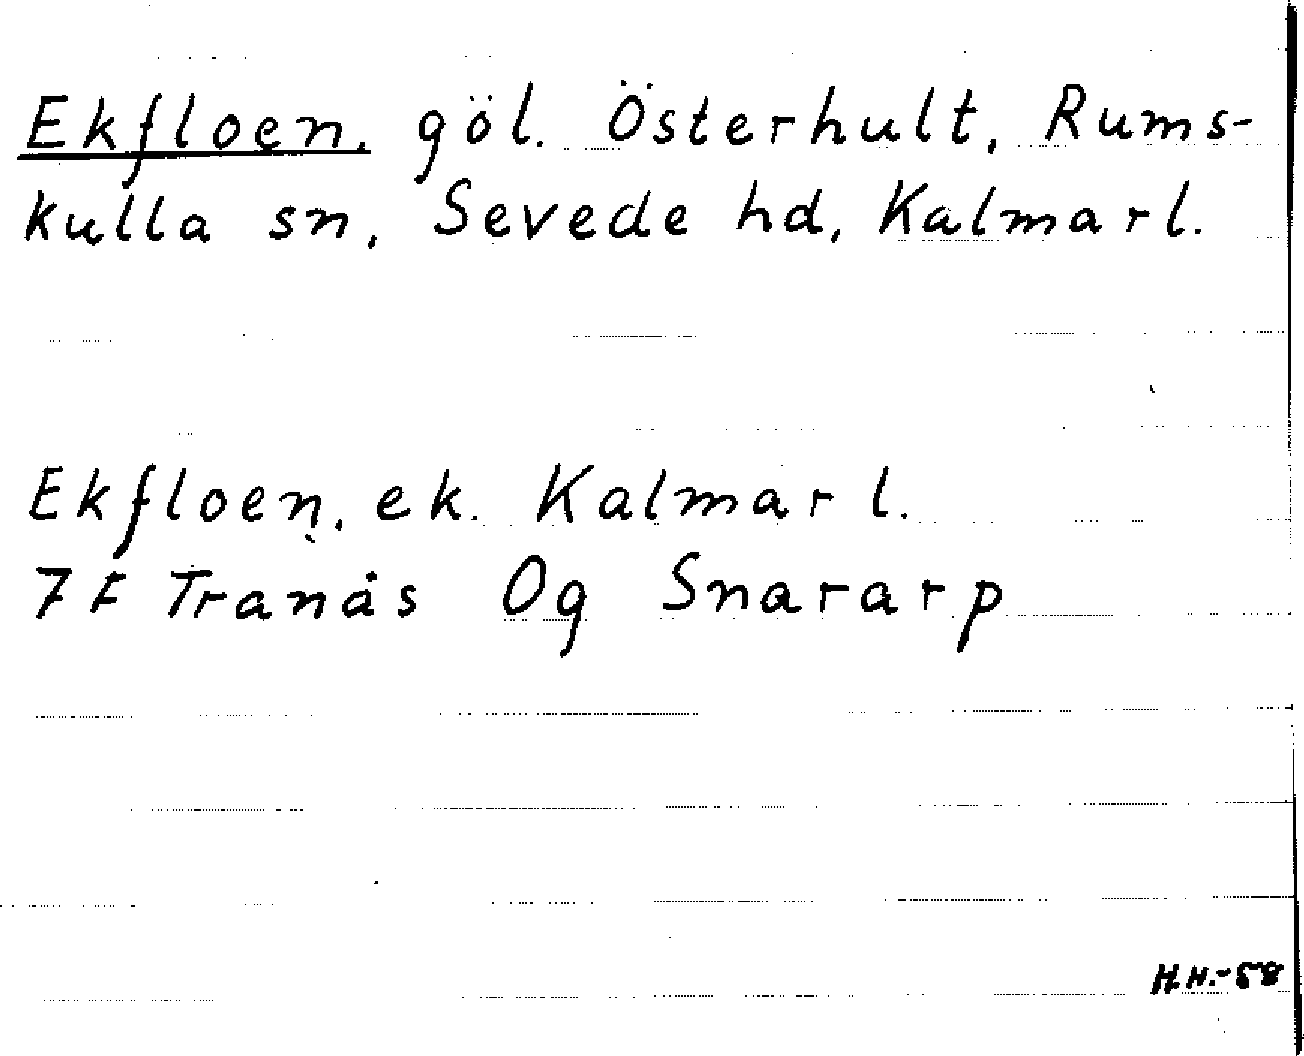 Ekfloen, göl. Österhult, Rums-
kulla sn, Sevede hd, Kalmar l.
Ekfloen, ek. Kalmar l.
7 F Tranås Og Snararp
H.H.-58